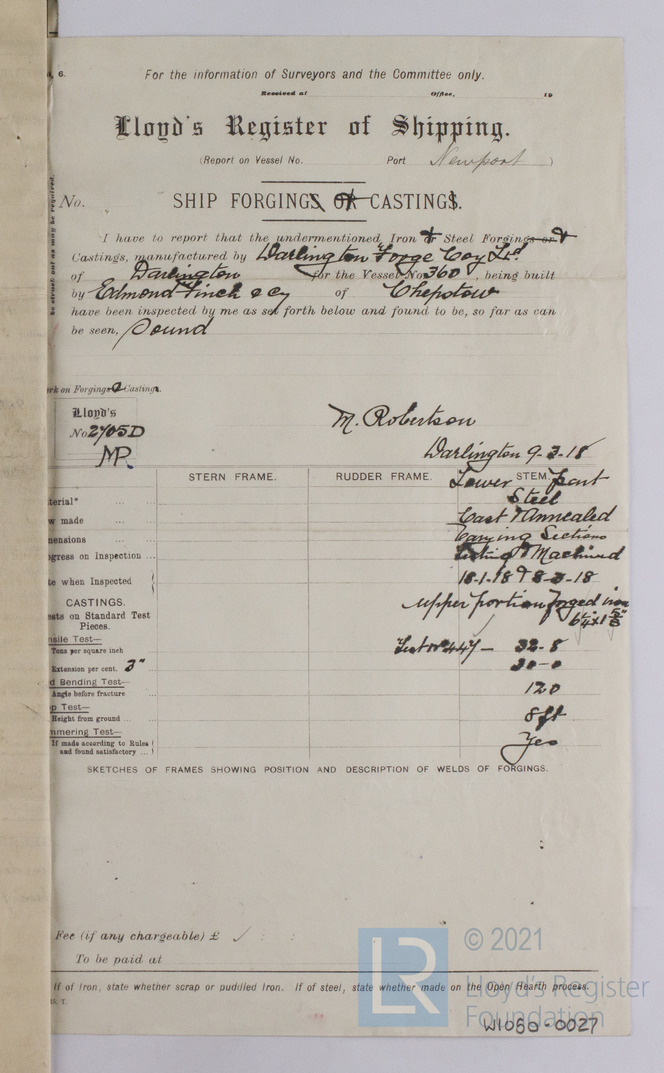 6.
For the information of Surveyors and the Committee only.
Received at Office, 19
Lloyd's Register of Shipping.
(Report on Vessel No. Port Newport )
No. SHIP FORGINGS OR CASTINGS.
I have to report that the undermentioned Iron & Steel Forgings or &
Castings, manufactured by Darlington Forge Coy Ltd
of Darlington for the Vessel No 360, being built
by Edmond Finch & Cy of Chepstow
have been inspected by me as set forth below and found to be, so far as can
be seen, Sound
be struck out as may be required.
rk on Forgings & Castings.
Lloyd's
No 2705D
MR
M. Robertson
Darlington 9-3-18
STERN FRAME. RUDDER FRAME. STEM.
Lower part
terial* ... ... Steel
w made ... ... Cast & Annealed
mensions ... ... Varying Sections
ogress on Inspection ... Testing & Machined
te when Inspected 18-1-18 & 8-3-18
CASTINGS. upper portion forged iron
sts on Standard Test 6¼ x 1⅝"
Pieces.
nsile Test—
Tons per square inch Test No 447 — 32-8
Extension per cent. 3" 30-0
d Bending Test—
Angle before fracture 120
p Test—
Height from ground ... 8ft
mmering Test—
If made according to Rules Yes
and found satisfactory ...
SKETCHES OF FRAMES SHOWING POSITION AND DESCRIPTION OF WELDS OF FORGINGS.
Fee (if any chargeable) £ ✓ : :
To be paid at
If of Iron, state whether scrap or puddled Iron. If of steel, state whether made on the Open Hearth process.
S. T.
LR
© 2021
Lloyd's Register
Foundation
W1060-0027